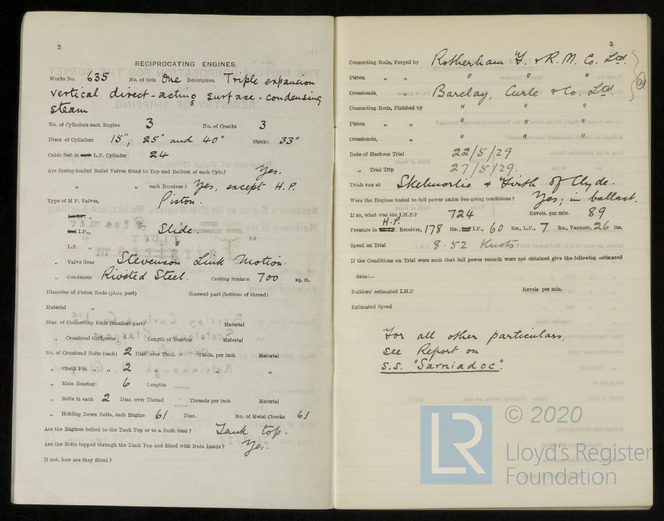 2
RECIPROCATING ENGINES.
Works No. 635 No. of Sets One Description Triple expansion
vertical direct-acting surface-condensing
steam
No. of Cylinders each Engine 3 No. of Cranks 3
Diars of Cylinders 15", 25" and 40" Stroke 33"
Cubic feet in each L.P. Cylinder 24
Are Spring-loaded Relief Valves fitted to Top and Bottom of each Cyld.? Yes.
" " each Receiver? Yes, except H.P.
Type of H.P. Valves, Piston.
" L.P., Slide.
" L.P. " "
" Valve Gear Stevenson Link Motion.
" Condenser Riveted Steel. Cooling Surface 700 sq. ft.
Diameter of Piston Rods (plain part) Screwed part (bottom of thread)
Material "
Diar. of Connecting Rods (smallest part) Material
" Crosshead Gudgeons Length of Bearing Material
No. of Crosshead Bolts (each) 2 Diar. over Thrd. Thrds. per inch Material
" Crank Pin " " 2 " " "
" Main Bearings 6 Lengths
" Bolts in each 2 Diar. over Thread Threads per inch Material
" Holding Down Bolts, each Engine 61 Diar. No. of Metal Chocks 61
Are the Engines bolted to the Tank Top or to a Built Seat? Tank top.
Are the Bolts tapped through the Tank Top and fitted with Nuts Inside? Yes.
If not, how are they fitted?
3
Connecting Rods, Forged by Rotherham F. & R. M. Co. Ltd
Piston " " "
Crossheads, " Barclay, Curle & Co. Ltd
Connecting Rods, Finished by " " "
Piston " " " "
Crossheads, " " " "
Date of Harbour Trial 22/5/29
" Trial Trip 27/5/29
Trials run at Skelmorlie & Firth of Clyde.
Were the Engines tested to full power under Sea-going conditions? Yes; in ballast.
If so, what was the I.H.P.? 724 Revols. per min. 89
Pressure in H.P. Receiver, 178 lbs., L.P., 60 lbs., L.P., 7 lbs., Vacuum, 26 ins.
Speed on Trial 8.52 Knots.
If the Conditions on Trial were such that full power records were not obtained give the following estimated
data:—
Builders' estimated I.H.P. Revols per min.
Estimated Speed
For all other particulars
see Report on
S.S. "Sarniadoc".
LR
© 2020
Lloyd's Register
Foundation